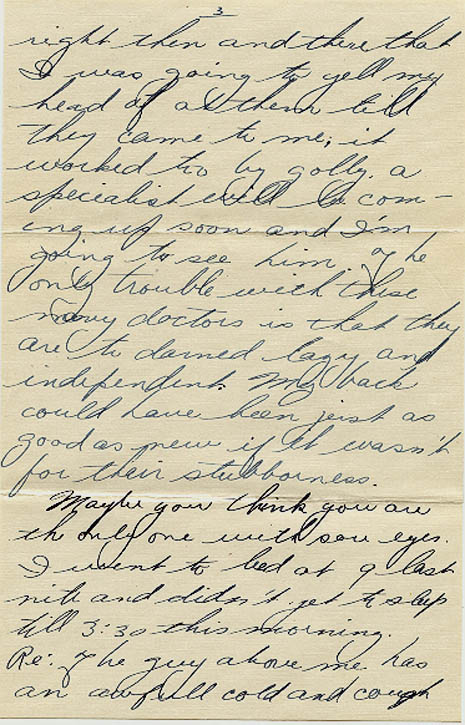 3
right then and there that
I was going to yell my
head of at them till
they came to me; it
worked too by golly. a
specialist will be com-
ing up soon and I'm
going to see him. The
only trouble with these
navy doctors is that they
are to darned lazy and
independent. My back
could have been just as
good as new if it wasn't
for their stubborness.
Maybe you think you are
th only one with sore eyes.
I went to bed at 9 last
nite and didn't get to sleep
till 3:30 this morning.
Re: The guy above me has
an awfull cold and cough